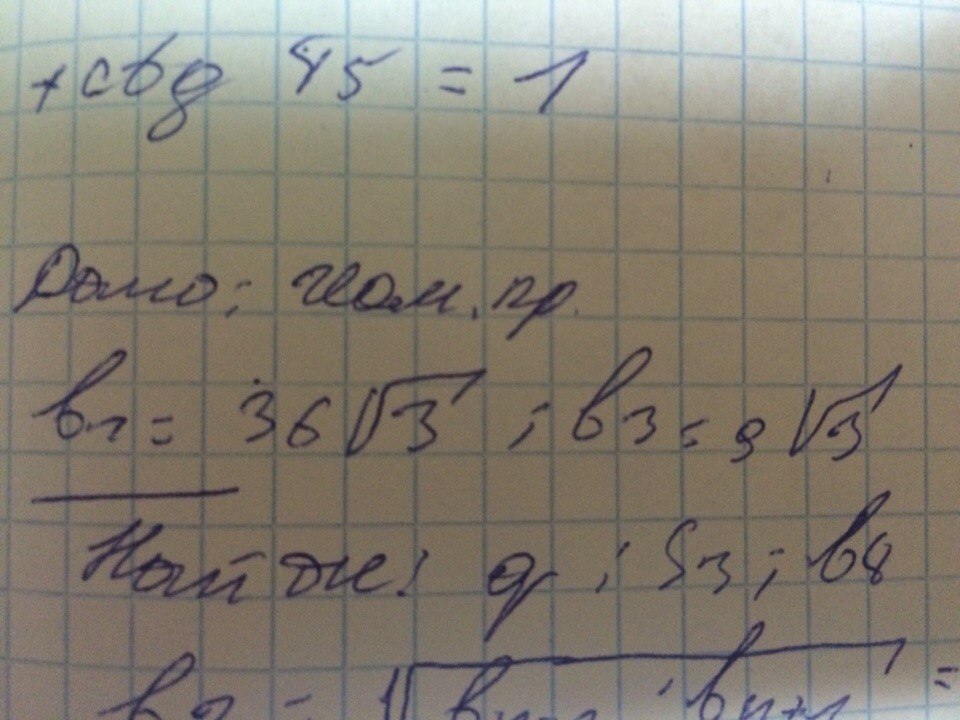 +ctg 45 = 1
Дано: геом. пр.
b₁ = 36√3 ; b₃ = 9√3
Найти: q ; S₃ ; b8
b₂ = √bₙ₋₁ · bₙ₊₁ =